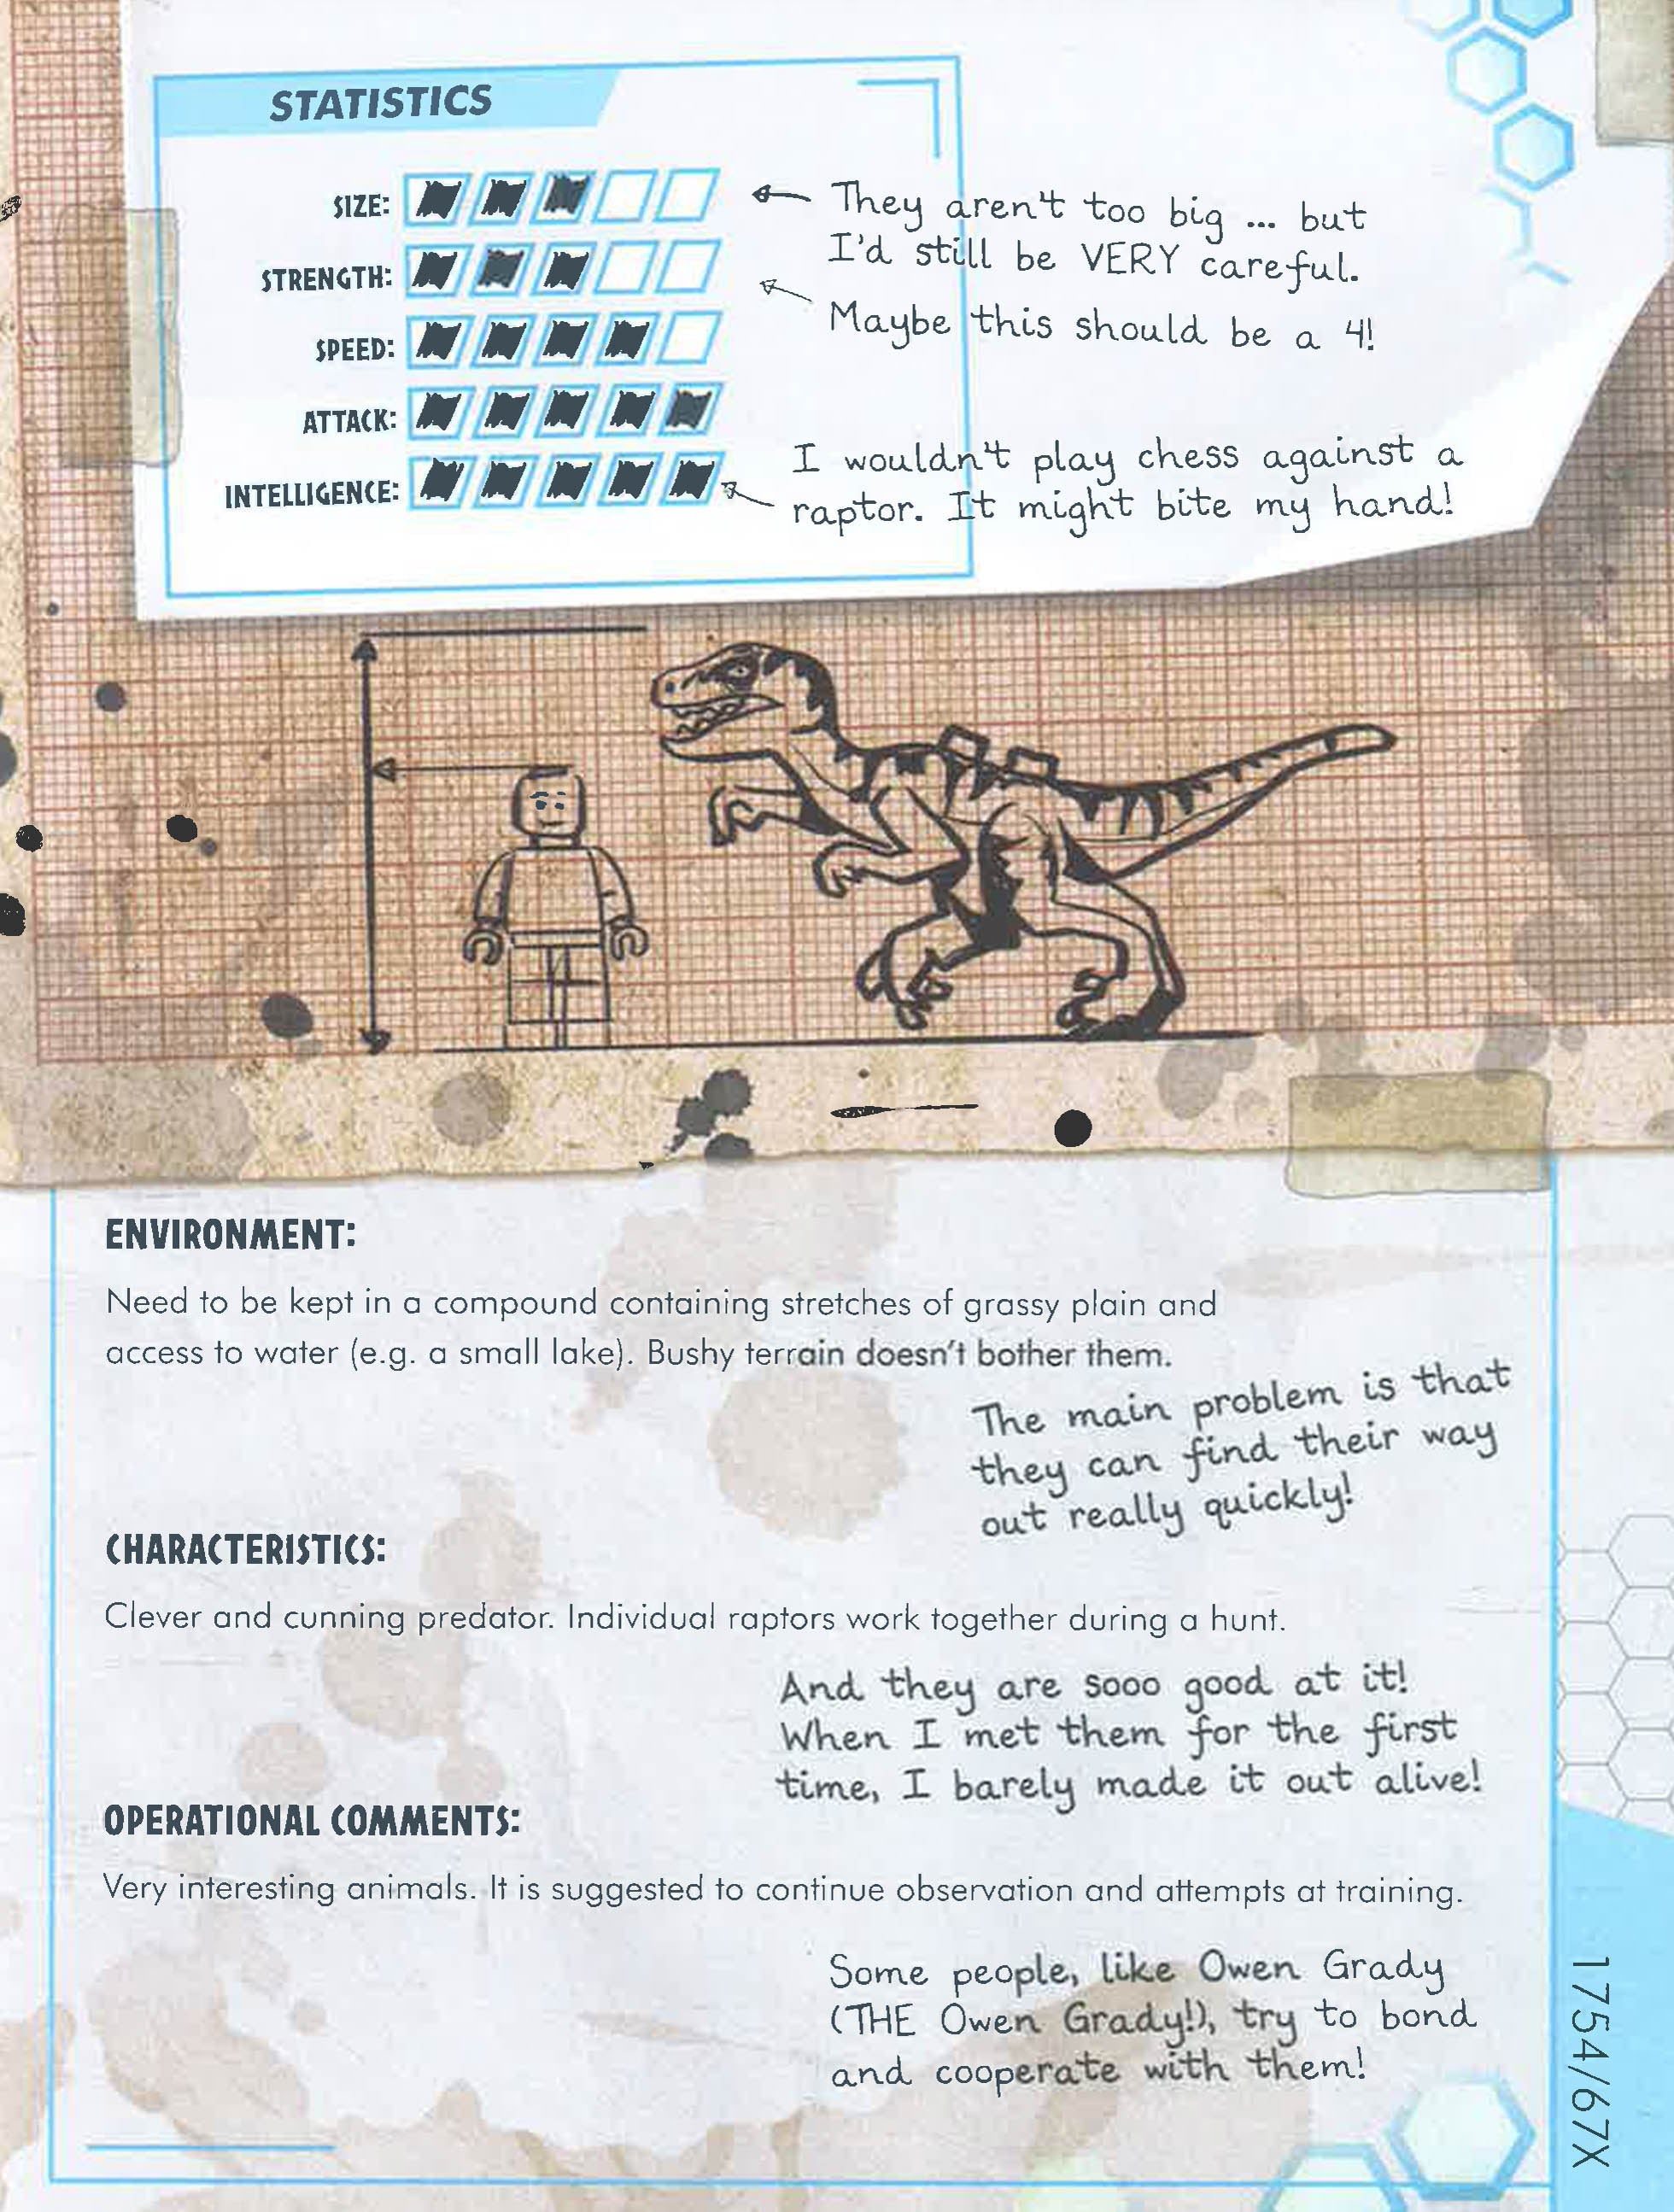 STATISTICS
SIZE:
They aren't too big ... but
I'd still be VERY careful.
STRENGTH:
Maybe this should be a 4!
SPEED:
ATTACK:
INTELLIGENCE:
I wouldn't play chess against a
raptor. It might bite my hand!
ENVIRONMENT:
Need to be kept in a compound containing stretches of grassy plain and
access to water (e.g. a small lake). Bushy terrain doesn't bother them.
The main problem is that
they can find their way
out really quickly!
CHARACTERISTICS:
Clever and cunning predator. Individual raptors work together during a hunt.
And they are sooo good at it!
When I met them for the first
time, I barely made it out alive!
OPERATIONAL COMMENTS:
Very interesting animals. It is suggested to continue observation and attempts at training.
Some people, like Owen Grady
(THE Owen Grady!), try to bond
and cooperate with them!
1754/67X